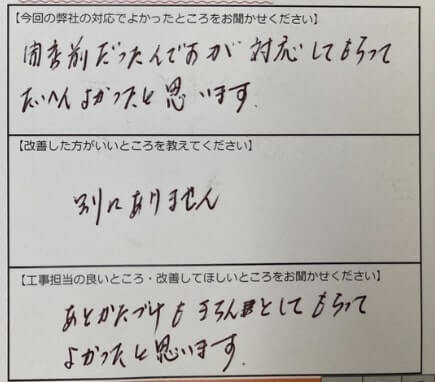 【今回の弊社の対応でよかったところをお聞かせください】
前だったんですが 対応してもらって
たいへんよかったと思います.
【改善した方がいいところを教えてください】
別にありません
【工事担当の良いところ・改善してほしいところをお聞かせください】
あとかたづけも きちんとしてもらって
よかったと思います.